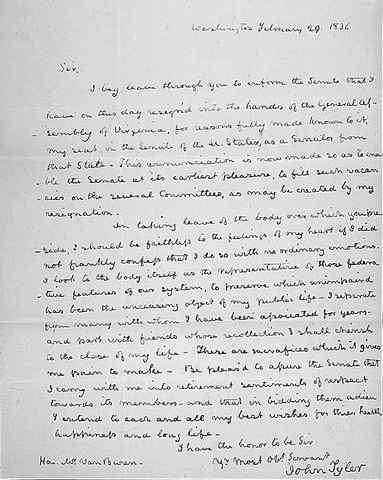 Washington February 29 1836
Sir,
I beg leave through you to inform the Senate that I
have on this day resign'd into the hands of the General As-
-sembly of Virginia, for reasons fully made known to it,
my seat in the Senate of the U. States, as a Senator from
that State - This annunciation is now made so as to ena-
-ble the Senate at its earliest pleasure, to fill such vacan-
-cies on the several Committees, as may be created by my
resignation.
In taking leave of the body over which you pre-
-side, I should be faithless to the feelings of my heart if I did
not frankly confess that I do so with no ordinary emotions.
I look to the body itself as the representative of those federa-
-tive features of our system, to preserve which unimpaird
has been the unceasing object of my public life - I separate
from many with whom I have been associated for years-
and part with friends whose recollection I shall cherish
to the close of my life - These are sacrafices which it gives
me pain to make - Be pleas'd to assure the Senate that
I carry with me into retirement sentiments of respect
towards its members - and that in bidding them adieu
I extend to each and all my best wishes for their health
happiness and long life -
I have the honor to be Sir
Yr. most Obt. Servant
Hon. Mr. Van Buren -
John Tyler